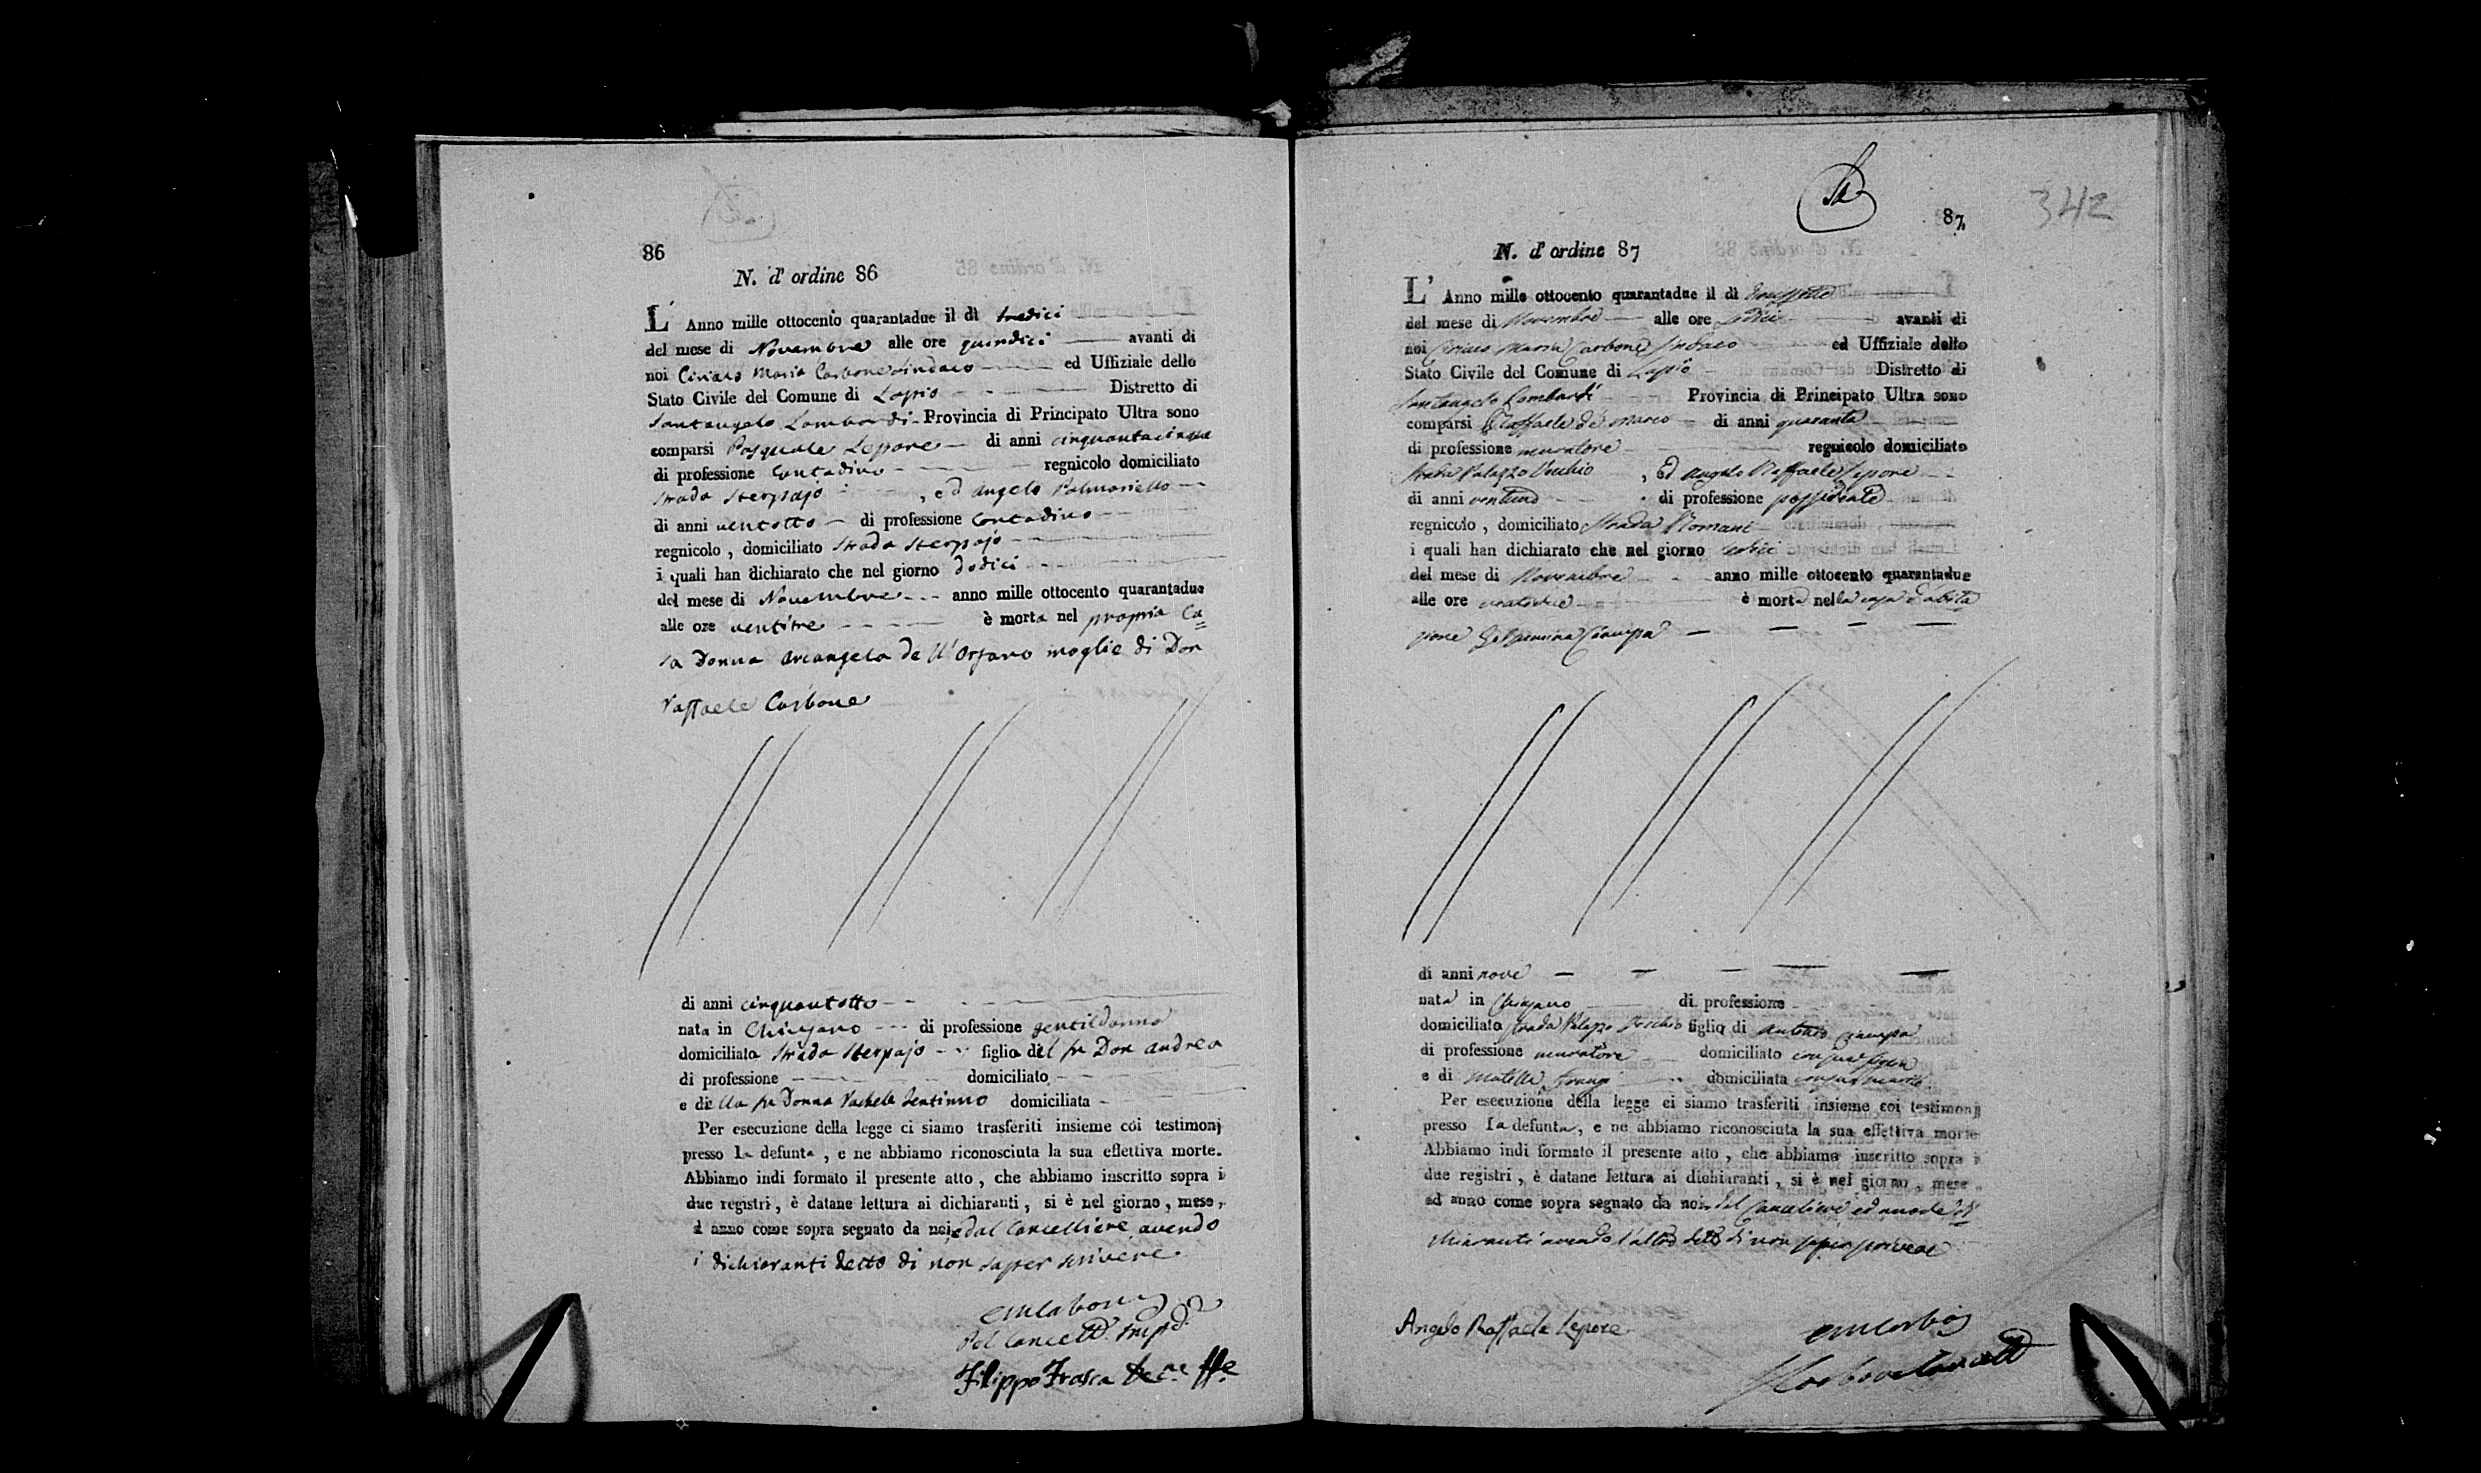 86
N. d' ordine 86
L' Anno mille ottocento quarantadue il dì tredici
del mese di Novembre alle ore quindici avanti di
noi Ciriaco Maria Carbone Sindaco ed Uffiziale dello
Stato Civile del Comune di Lapio Distretto di
Santangelo Lombardi Provincia di Principato Ultra sono
comparsi Pasquale Lepore di anni cinquantacinque
di professione Contadino regnicolo domiciliato
Strada Sterpajo , ed Angelo Palmariello
di anni ventotto di professione Contadino
regnicolo , domiciliato Strada Sterpajo
i quali han dichiarato che nel giorno dodici
del mese di Novembre anno mille ottocento quarantadue
alle ore ventitre è morta nel propria Ca=
sa Donna Arcangela dell'Organo moglie di Don
Raffaele Carbone
di anni cinquantotto
nata in Chiusano di professione gentildonna
domiciliata Strada Sterpajo figlia del fu Don Andrea
di professione domiciliato
e della fu Donna Rachele domiciliata
Per esecuzione della legge ci siamo trasferiti insieme coi testimonj
presso la defunta , e ne abbiamo riconosciuta la sua effettiva morte.
Abbiamo indi formato il presente atto , che abbiamo inscritto sopra i
due registri , è datane lettura ai dichiaranti , si è nel giorno , mese ,
d anno come sopra segnato da noi, e dal Cancelliere avendo
i dichiaranti detto di non saper scrivere
Filippo Frasca
342
87
N. d' ordine 87
L' Anno mille ottocento quarantadue il dì
del mese di Novembre alle ore avanti di
noi Ciriaco Maria Carbone Sindaco ed Uffiziale dello
Stato Civile del Comune di Lapio Distretto di
Santangelo Lombardi Provincia di Principato Ultra sono
comparsi Raffaele de Marco di anni quaranta
di professione muratore regnicolo domiciliato
Strada Palazzo Vecchio , ed Angelo Raffaele Lepore
di anni ventuno di professione possidente
regnicolo , domiciliato Strada Romani
i quali han dichiarato che nel giorno
del mese di Novembre anno mille ottocento quarantadue
alle ore è morta nella casa d'abita
zione Ciampa
di anni nove
nata in Chiusano di professione
domiciliata Strada Palazzo Vecchio figlia di Antonio Ciampa
di professione muratore domiciliato
e di domiciliata
Per esecuzione della legge ci siamo trasferiti insieme coi testimonj
presso la defunta, e ne abbiamo riconosciuta la sua effettiva morte
Abbiamo indi formato il presente atto , che abbiamo inscritto sopra i
due registri , è datane lettura ai dichiaranti , si è nel giorno , mese
ed anno come sopra segnato da noi, dal Cancelliere ed uno de' di=
chiaranti avendo l'altro detto di non saper scrivere
Angelo Raffaele Lepore